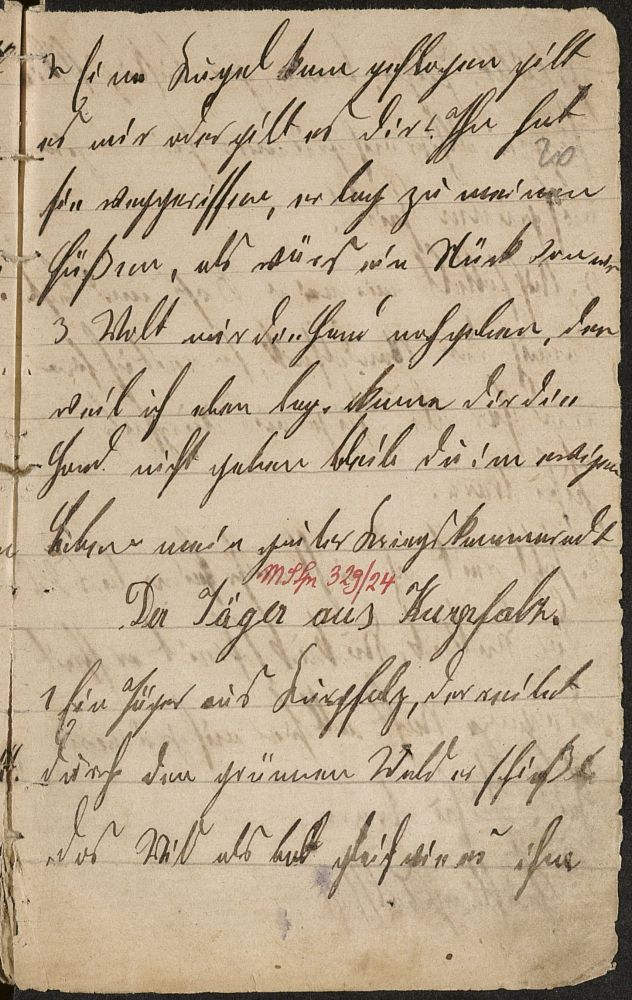 2 Eine Kugel kam geflogen gilt
es mir oder gilt es dir? Ihn hat
20
sie weggerissen, er lag zu meinen
Füßen, als wärs ein Stück von mir
3 Wolt mir die Hand noch geben, der
weil ich eben lag. kann dir die
Hand nicht geben bleib du im ewigen
Leben mein guter Kriegskammeradt
329/24
Der Jäger aus Kurpfalz.
1 Ein Jäger aus Kurpfalz, der reitet
durch den grünnen Wald er schießt
das Wild als bald gleich wie es ihm